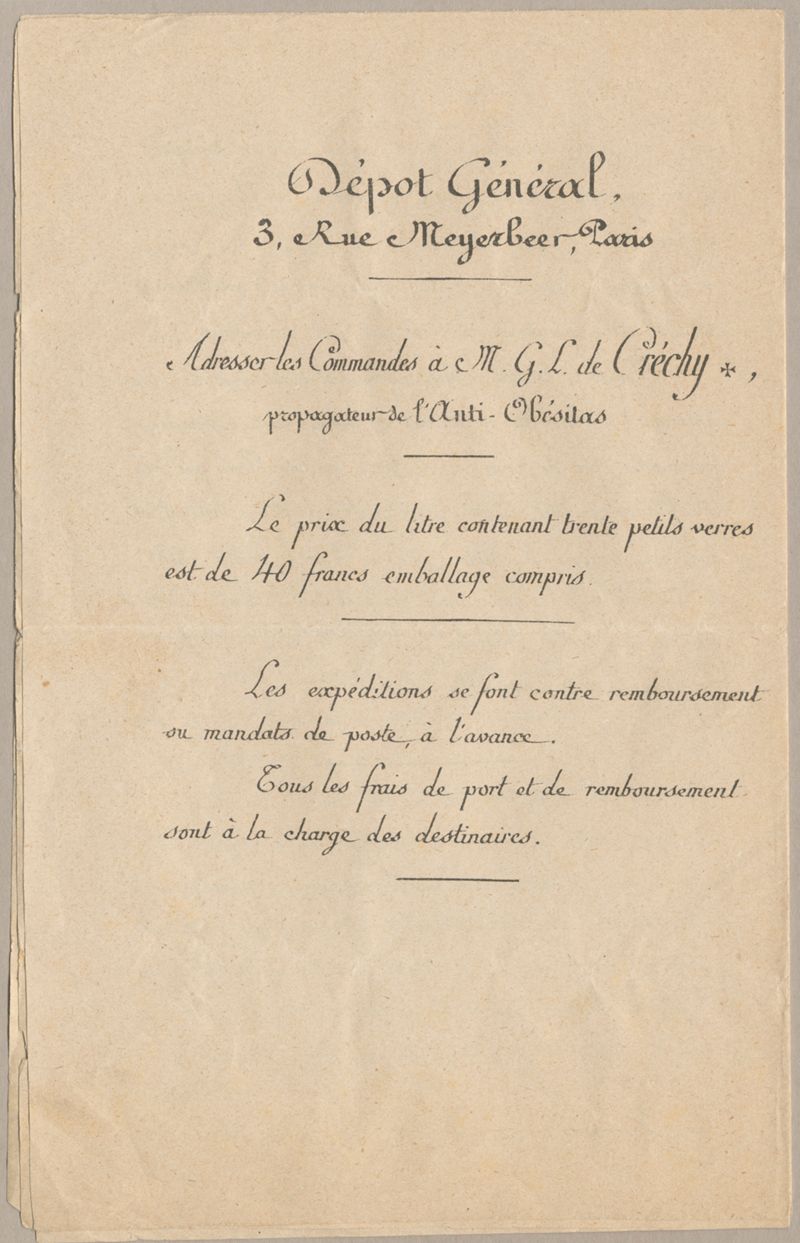 Dépot Général,
3, Rue Meyerbeer, Paris
Adresser les Commandes à M. G. L. de Créchy ✠,
propagateur de l'Anti-Obésitas
Le prix du litre contenant trente petits verres
est de 40 francs emballage compris.
Les expéditions se font contre remboursement
ou mandats de poste, à l'avance.
Tous les frais de port et de remboursement
sont à la charge des destinaires.